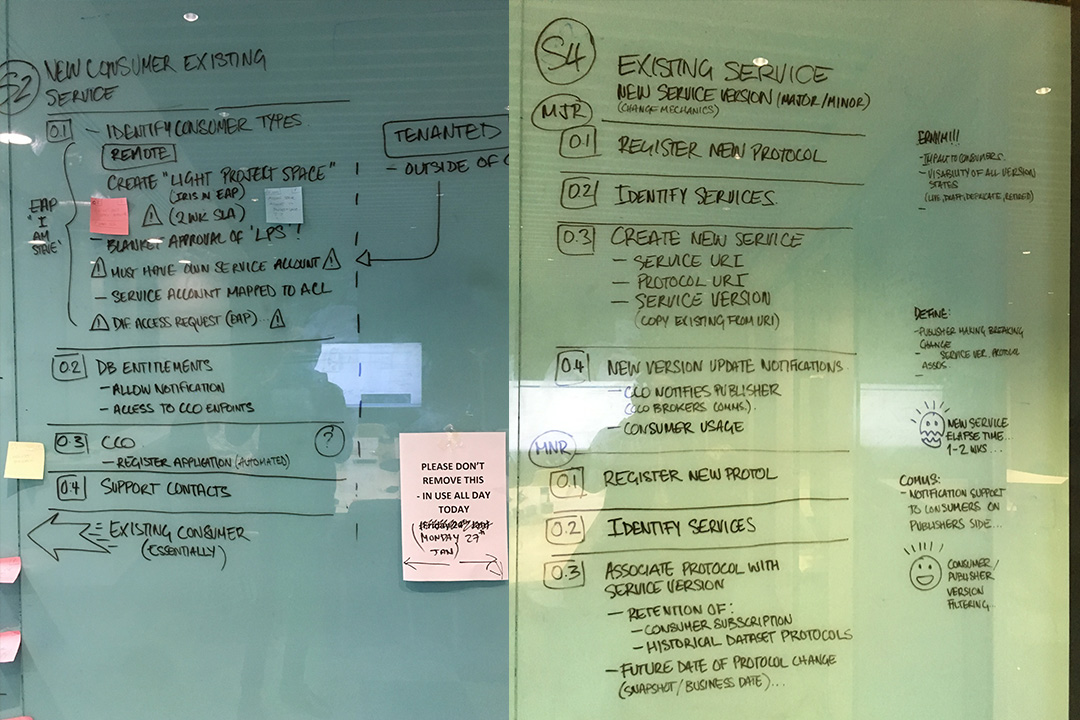 S2
NEW CONSUMER EXISTING
SERVICE
0.1 - IDENTIFY CONSUMER TYPES
REMOTE
CREATE "LIGHT PROJECT SPACE"
(IRIS N EAP)
(2 WK SLA)
- BLANKET APPROVAL OF 'LPS'!
! MUST HAVE OWN SERVICE ACCOUNT !
- SERVICE ACCOUNT MAPPED TO ACL
! DIF ACCESS REQUEST (EAP)... !
EAP
"I
AM
STEVE"
TENANTED
- OUTSIDE OF
0.2 DB ENTITLEMENTS
- ALLOW NOTIFICATION
- ACCESS TO CCO ENPOINTS
0.3 CCO ?
- REGISTER APPLICATION (AUTOMATED)
0.4 SUPPORT CONTACTS
EXISTING CONSUMER
(ESSENTIALLY)
PLEASE DON'T
REMOVE THIS
- IN USE ALL DAY
TODAY
(MONDAY 27TH
JAN)
S4
EXISTING SERVICE
NEW SERVICE VERSION (MAJOR/MINOR)
(CHANGE MECHANICS)
MJR
0.1 REGISTER NEW PROTOCOL
0.2 IDENTIFY SERVICES.
0.3 CREATE NEW SERVICE
- SERVICE URI
- PROTOCOL URI
- SERVICE VERSION
(COPY EXISTING FROM URI)
0.4 NEW VERSION UPDATE NOTIFICATIONS
- CCO NOTIFIES PUBLISHER
(CCO BROKERS COMMS.)
- CONSUMER USAGE
MNR
0.1 REGISTER NEW PROTOL
0.2 IDENTIFY SERVICES
0.3 ASSOCIATE PROTOCOL WITH
SERVICE VERSION
- RETENTION OF:
- CONSUMER SUBSCRIPTION
- HISTORICAL DATASET PROTOCOLS
- FUTURE DATE OF PROTOCOL CHANGE
(SNAPSHOT/BUSINESS DATE)...
- IMPACT TO CONSUMERS.
- VISABILITY OF ALL VERSION
STATES
(LIVE, DRAFT, DEPRICATE, RETIRED)
-
DEFINE:
- PUBLISHER MAKING BREAKING
CHANGE
- SERVICE VER. PROTOCOL
ASSOS..
-
NEW SERVICE
ELAPSE TIME...
1-2 WKS...
COMMS:
- NOTIFICATION SUPPORT
TO CONSUMERS ON
PUBLISHERS SIDE...
CONSUMER/
PUBLISHER
VERSION
FILTERING..